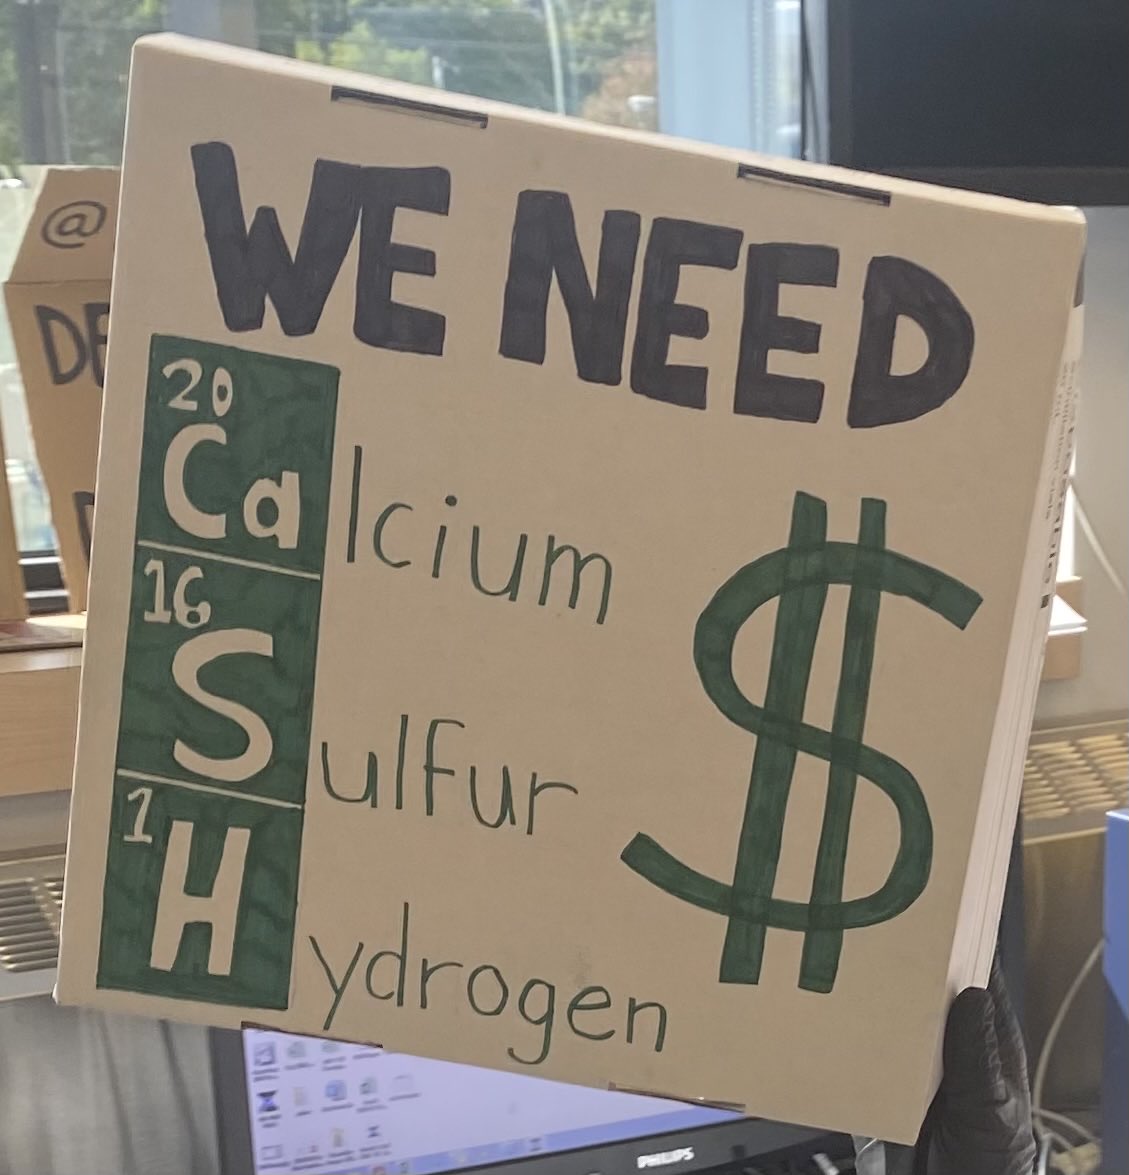 WE NEED
20
Calcium
16
Sulfur
1
Hydrogen
$
@
DE
PHILIPS